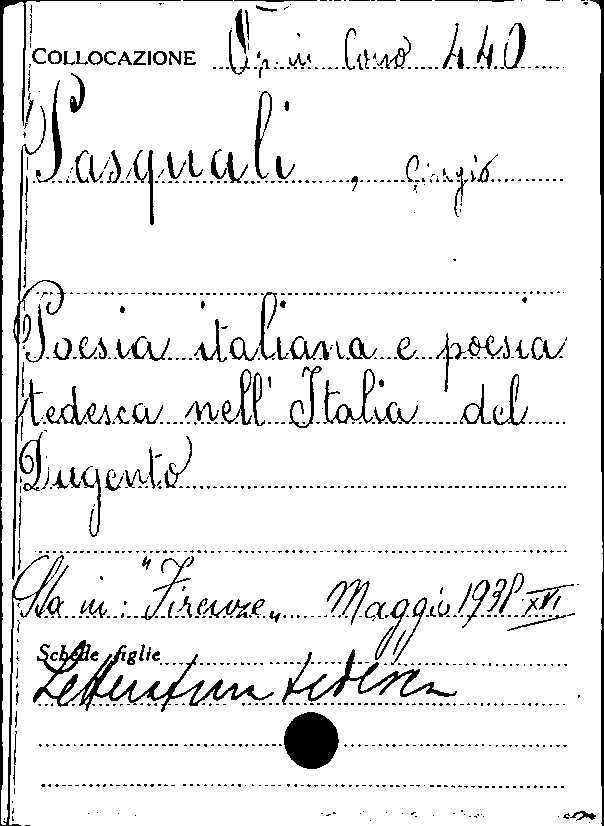 COLLOCAZIONE Op. in Corso 440
Pasquali, Giorgio
Poesia italiana e poesia
tedesca nell' Italia del
Dugento
Sta in: "Firenze„ Maggio 1938 XVI
Schede figlie
Letteratura tedesca